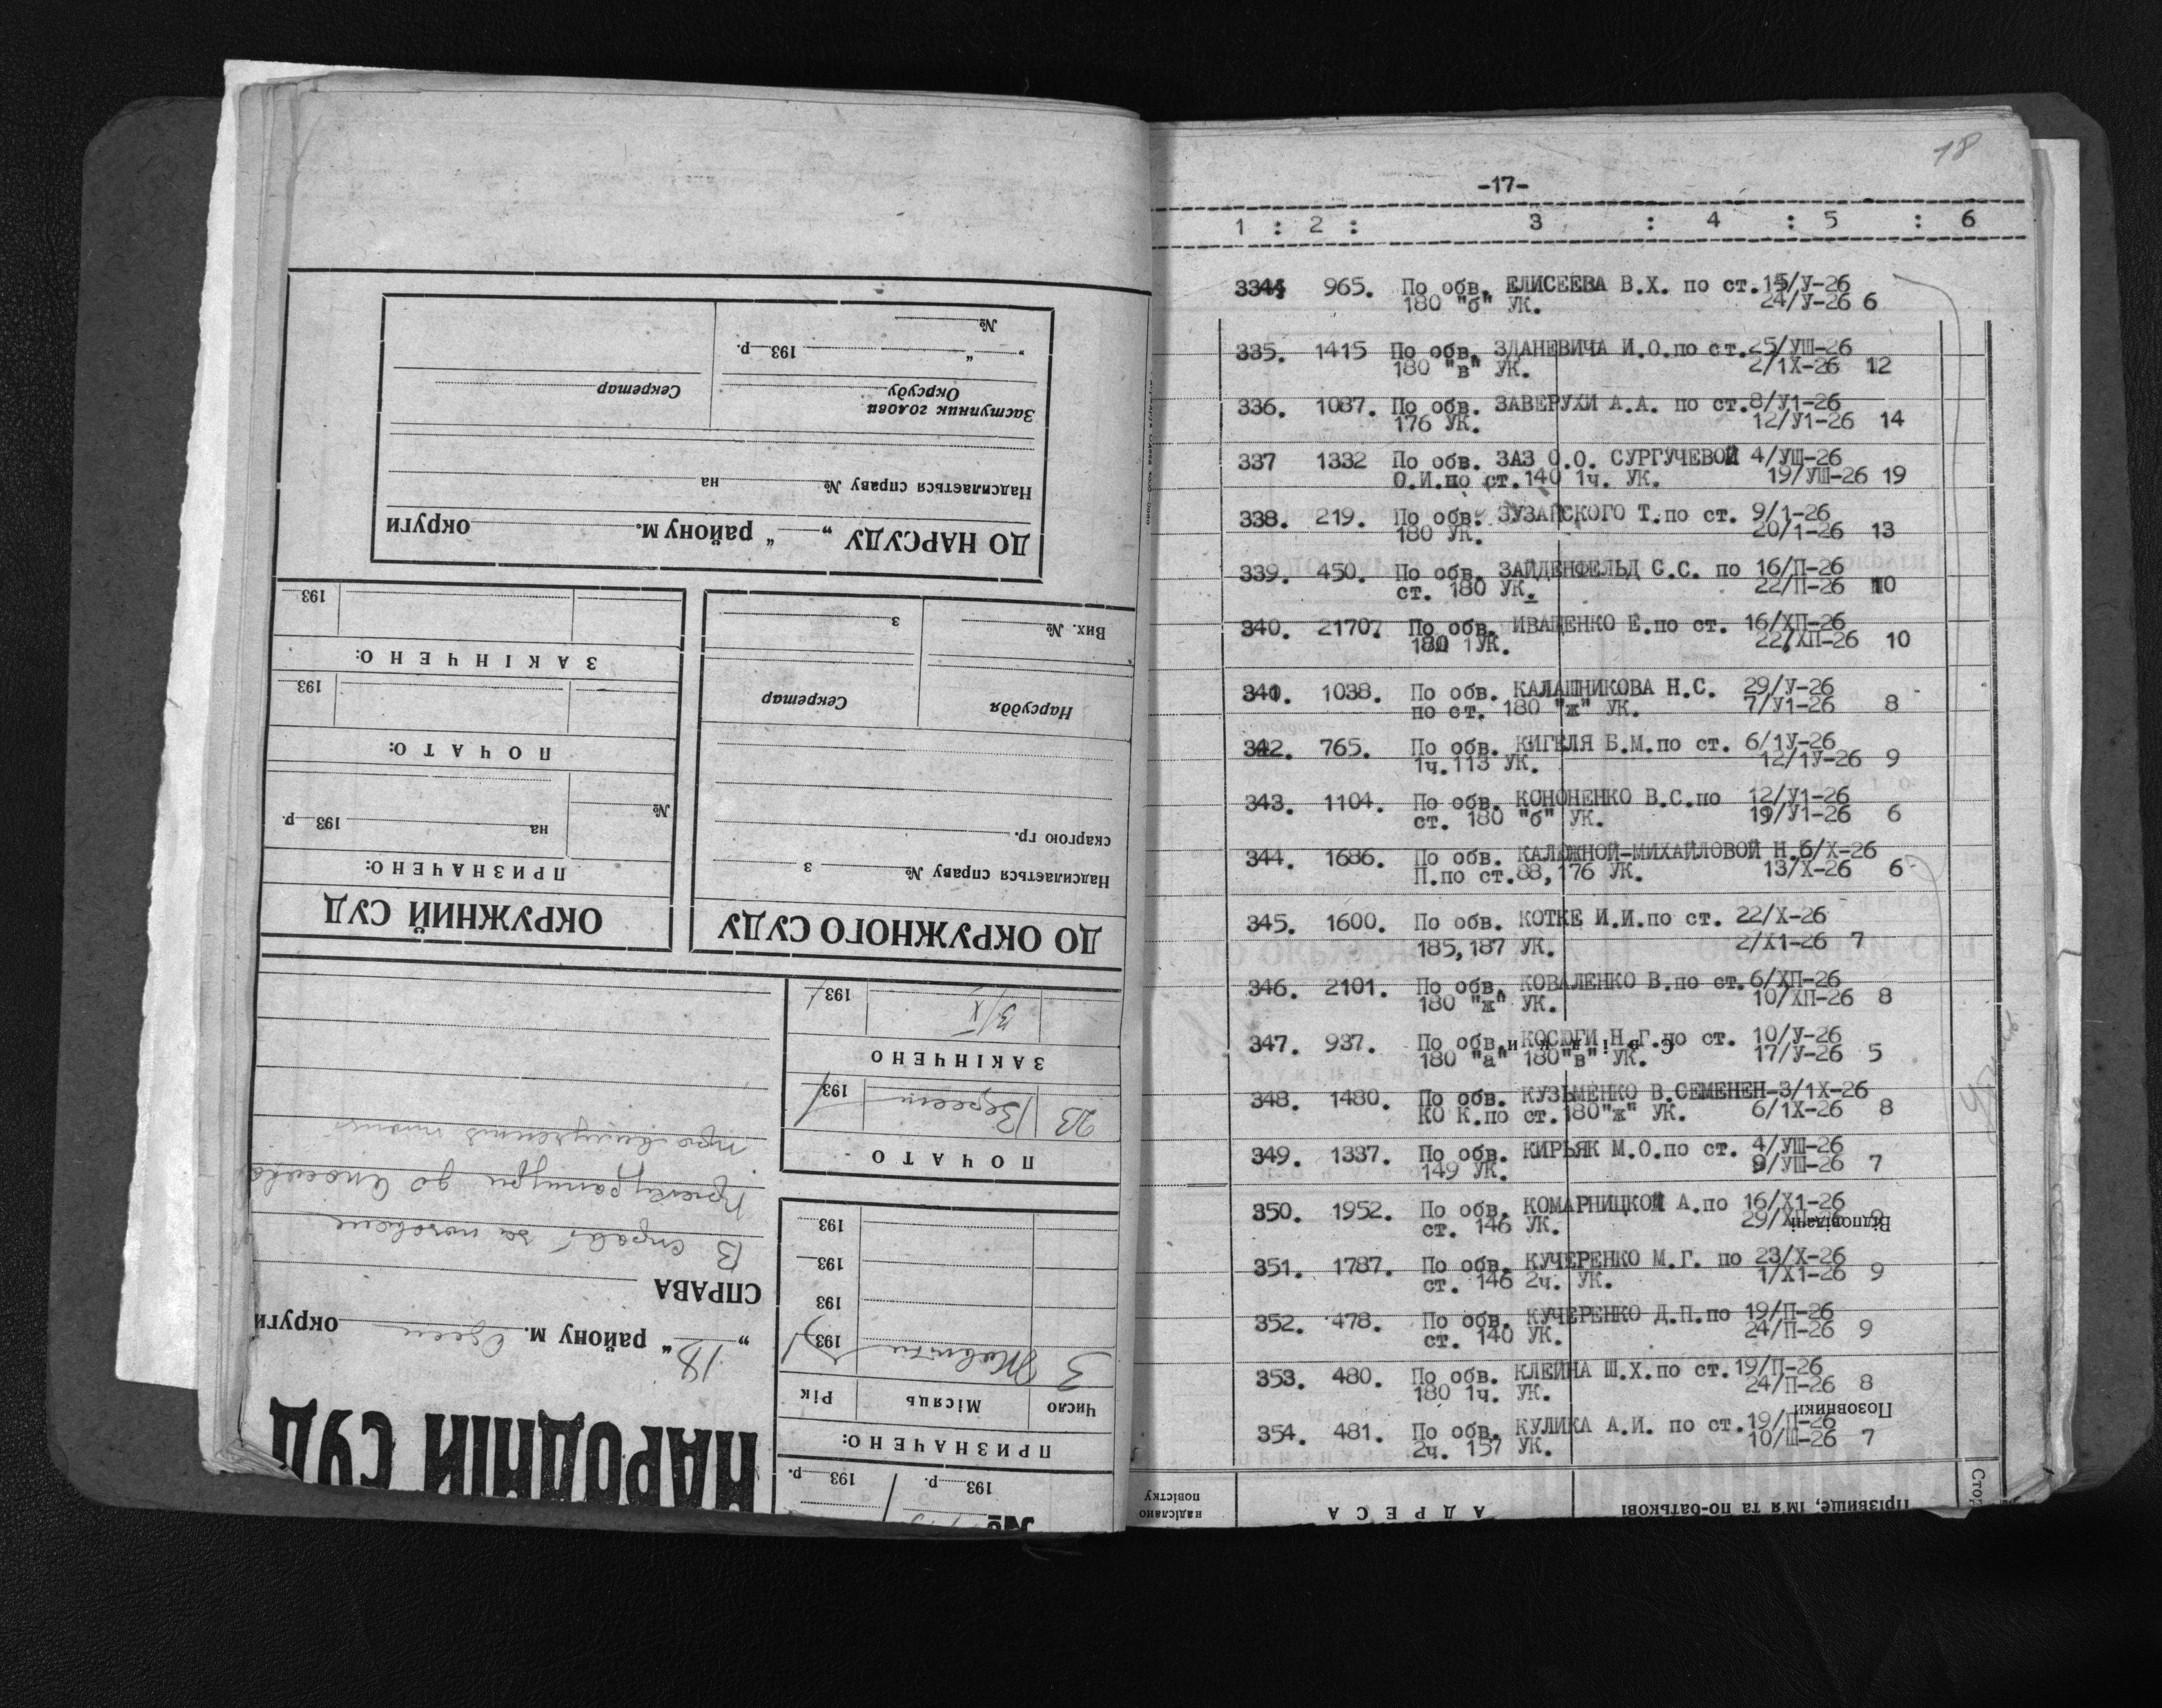 18
-17-
1 : 2 : 3 : 4 : 5 : 6
334 965. По обв. ЕЛИСЕЕВА В.Х. по ст.15/У-26
180 "б" УК. 24/У-26 6
335. 1415 По обв. ЗДАНЕВИЧА И.О.по ст.25/УШ-26
180 "в" УК. 2/1Х-26 12
336. 1087. По обв. ЗАВЕРУХИ А.А. по ст.8/У1-26
176 УК. 12/У1-26 14
337 1332 По обв. ЗАЗ О.О. СУРГУЧЕВОЙ 4/УШ-26
О.И.по ст.140 1ч. УК. 19/УШ-26 19
338. 219. По обв. ЗУЗАНСКОГО Т.по ст. 9/1-26
180 УК. 20/1-26 13
339. 450. По обв. ЗАЙДЕНФЕЛЬД С.С. по 16/П-26
ст. 180 УК. 22/П-26 10
340. 2170 По обв. ИВАЩЕНКО Е.по ст. 16/ХП-26
180 1УК. 22/ХП-26 10
341. 1038. По обв. КАЛАШНИКОВА Н.С. 29/У-26
по ст. 180 "ж" УК. 7/У1-26 8
342. 765. По обв. КИГЕЛЯ Б.М.по ст. 6/1У-26
1ч.113 УК. 12/1У-26 9
343. 1104. По обв. КОНОНЕНКО В.С.по 12/У1-26
ст. 180 "б" УК. 19/У1-26 6
344. 1686. По обв. КАЛЮЖНОЙ-МИХАЙЛОВОЙ Н.6/Х-26
П.по ст.88,176 УК. 13/Х-26 6
345. 1600. По обв. КОТКЕ И.И.по ст. 22/Х-26
185,187 УК. 2/Х1-26 7
346. 2101. По обв. КОВАЛЕНКО В.по ст.6/ХП-26
180 "ж" УК. 10/ХП-26 8
347. 937. По обв. КОСЮГИ Н.Г.по ст. 10/У-26
180 "а" 180"в" УК. 17/У-26 5
348. 1480. По обв. КУЗЬМЕНКО В.СЕМЕНЕН-3/1Х-26
КО К.по ст.180"ж" УК. 6/1Х-26 8
349. 1337. По обв. КИРЬЯК М.О.по ст. 4/УШ-26
149 УК. 9/УШ-26 7
350. 1952. По обв. КОМАРНИЦКОЙ А.по 16/Х1-26
ст. 146 УК. 29/
Відповідачі
351. 1787. По обв. КУЧЕРЕНКО М.Г. по 23/Х-26
ст. 146 2ч. УК. 1/Х1-26 9
352. 478. По обв. КУЧЕРЕНКО Д.П.по 19/П-26
ст. 140 УК. 24/П-26 9
353. 480. По обв. КЛЕЙНА Ш.Х.по ст.19/П-26
180 1ч. УК. 24/П-26 8
Позовники
354. 481. По обв. КУЛИКА А.И. по ст.19/П-26
2ч. 157 УК. 10/Ш-26 7
Прізвище, ім'я та по-батькові
АДРЕСА
надіслано
повістку
№
193 р.
193 р.
ПРИЗНАЧЕНО:
Число Місяць Рік
3 193
193
193
193
ПОЧАТО
23 193
ЗАКІНЧЕНО
3/X 193
НАРОДНІЙ СУД
„18“ району м. Одеси округи
СПРАВА
В справі за
Прокуратури до
про
ДО ОКРУЖНОГО СУДУ
Надсилається справу № з
скаргою гр.
Нарсуддя Секретар
Вих. № з
ОКРУЖНИЙ СУД
ПРИЗНАЧЕНО:
№ на 193 р.
ПОЧАТО:
193
ЗАКІНЧЕНО:
193
ДО НАРСУДУ „ “ району м. округи
Надсилається справу № на
Заступник голови
Окрсуду Секретар
„ “ 193 р.
№